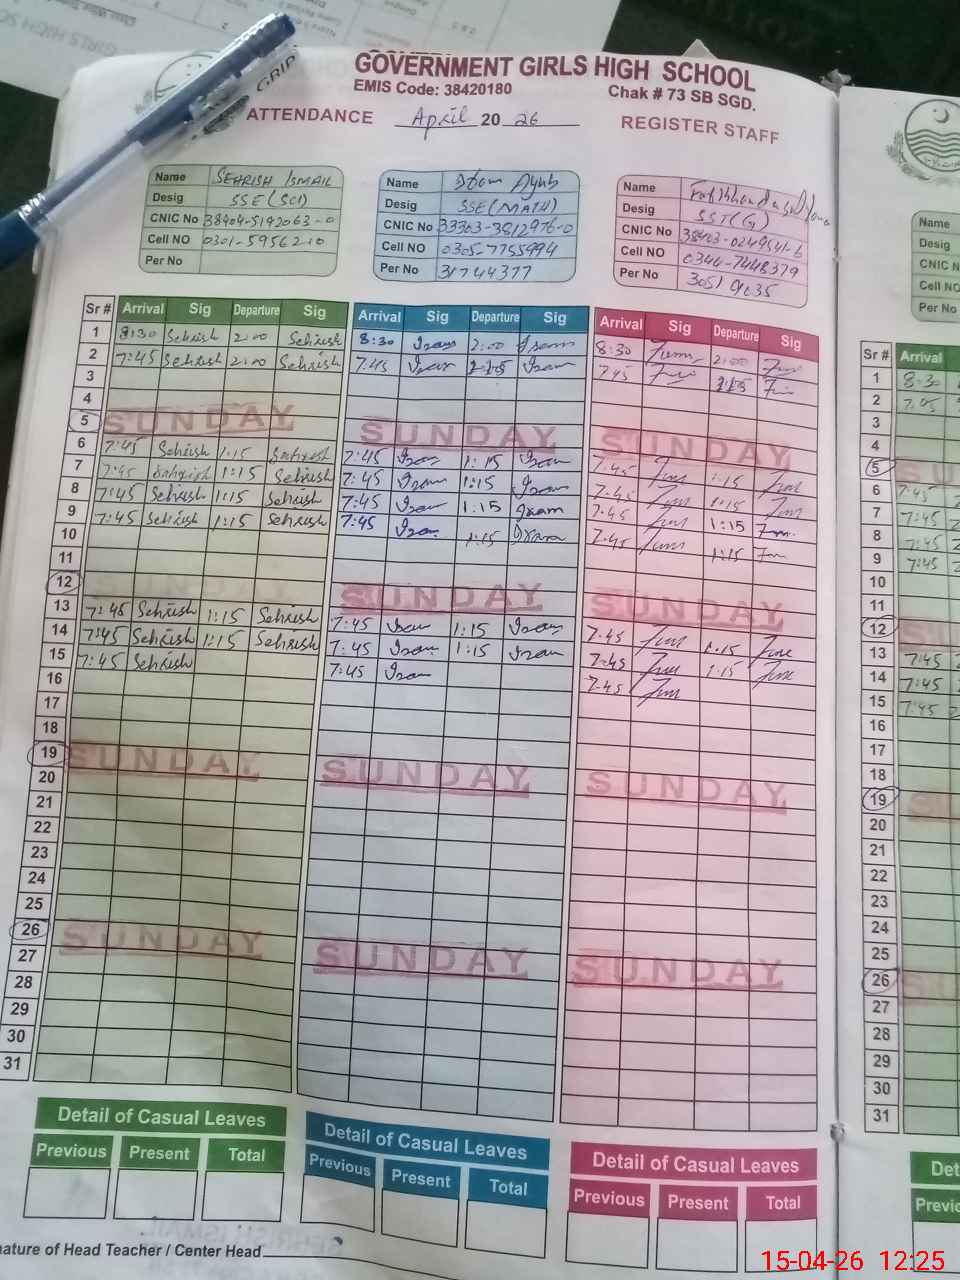 GRIP
GOVERNMENT GIRLS HIGH SCHOOL
EMIS Code: 38420180
Chak # 73 SB SGD.
ATTENDANCE April 20 26 REGISTER STAFF
Name SEHRISH ISMAIL
Desig SSE(SCI)
CNIC No 38404-5192063-0
Cell NO
Per No
Name Ayub
Desig SSE(MATH)
CNIC No 33303-3812976-0
Cell NO 0305-7755994
Per No 31744377
Name
Desig SST(G)
CNIC No 38403-0249541-6
Cell NO 0344-7448379
Per No
Name
Desig
CNIC N
Cell NO
Per No
Sr # Arrival Sig Departure Sig Arrival Sig Departure Sig Arrival Sig Departure Sig Sr # Arrival
1 8:30 Sehrish 2:00 Sehrish 8:30 Iram 2:00 Iram 8:30 2:00 1 8:30
2 7:45 Sehrish 2:00 Sehrish 7:45 Iram Iram 7:45 2 7:45
3 3
4 4
5 SUNDAY SUNDAY SUNDAY 5 SU
6 7:45 Sehrish 1:15 Sehrish 7:45 Iram 1:15 Iram 7:45 1:15 6 7:45
7 7:45 Sehrish 1:15 Sehrish 7:45 Iram 1:15 Iram 7:45 1:15 7 7:45
8 7:45 Sehrish 1:15 Sehrish 7:45 Iram 1:15 Iram 7:45 1:15 8 7:45
9 7:45 Sehrish 1:15 Sehrish 7:45 Iram 1:15 Iram 7:45 1:15 9 7:45
10 10
11 11
12 SUNDAY SUNDAY SUNDAY 12
13 7:45 Sehrish 1:15 Sehrish 7:45 Iram 1:15 Iram 7:45 1:15 13 7:45
14 7:45 Sehrish 1:15 Sehrish 7:45 Iram 1:15 Iram 7:45 1:15 14 7:45
15 7:45 Sehrish 7:45 Iram 7:45 15 7:45
16 16
17 17
18 18
19 SUNDAY SUNDAY SUNDAY 19 SU
20 20
21 21
22 22
23 23
24 24
25 25
26 SUNDAY SUNDAY SUNDAY 26 SU
27 27
28 28
29 29
30 30
31 31
Detail of Casual Leaves Detail of Casual Leaves Detail of Casual Leaves Det
Previous Present Total Previous Present Total Previous Present Total Previo
nature of Head Teacher / Center Head
SEHRISH ISMAIL
15-04-26 12:25